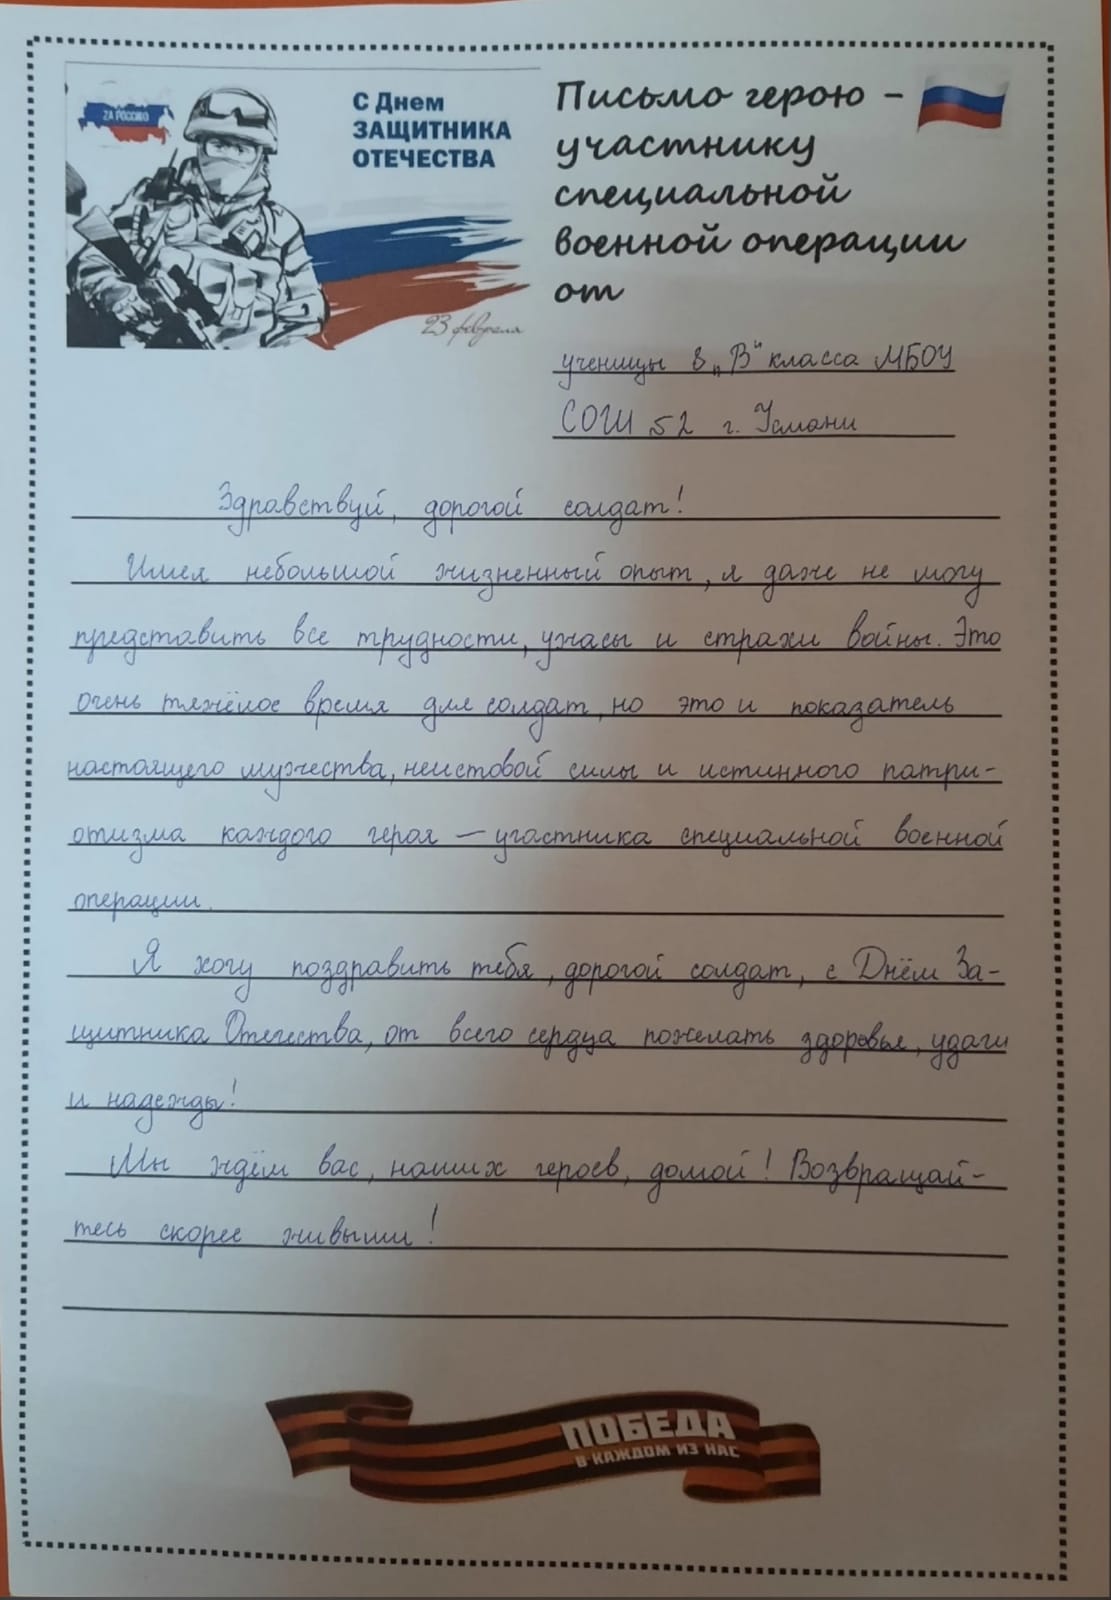 ZA РОССИЮ
С Днем
ЗАЩИТНИКА
ОТЕЧЕСТВА
23 февраля
Письмо герою –
участнику
специальной
военной операции
от
ученицы 8 „В“ класса МБОУ
СОШ №2 г. Усмани
Здравствуй, дорогой солдат!
Имея небольшой жизненный опыт, я даже не могу
представить все трудности, ужасы и страхи войны. Это
очень тяжёлое время для солдат, но это и показатель
настоящего мужества, неистовой силы и истинного патри-
отизма каждого героя – участника специальной военной
операции.
Я хочу поздравить тебя, дорогой солдат, с Днём За-
щитника Отечества, от всего сердца пожелать здоровья, удачи
и надежды!
Мы ждём вас, наших героев, домой! Возвращай-
тесь скорее живыми!
ПОБЕДА
В КАЖДОМ ИЗ НАС